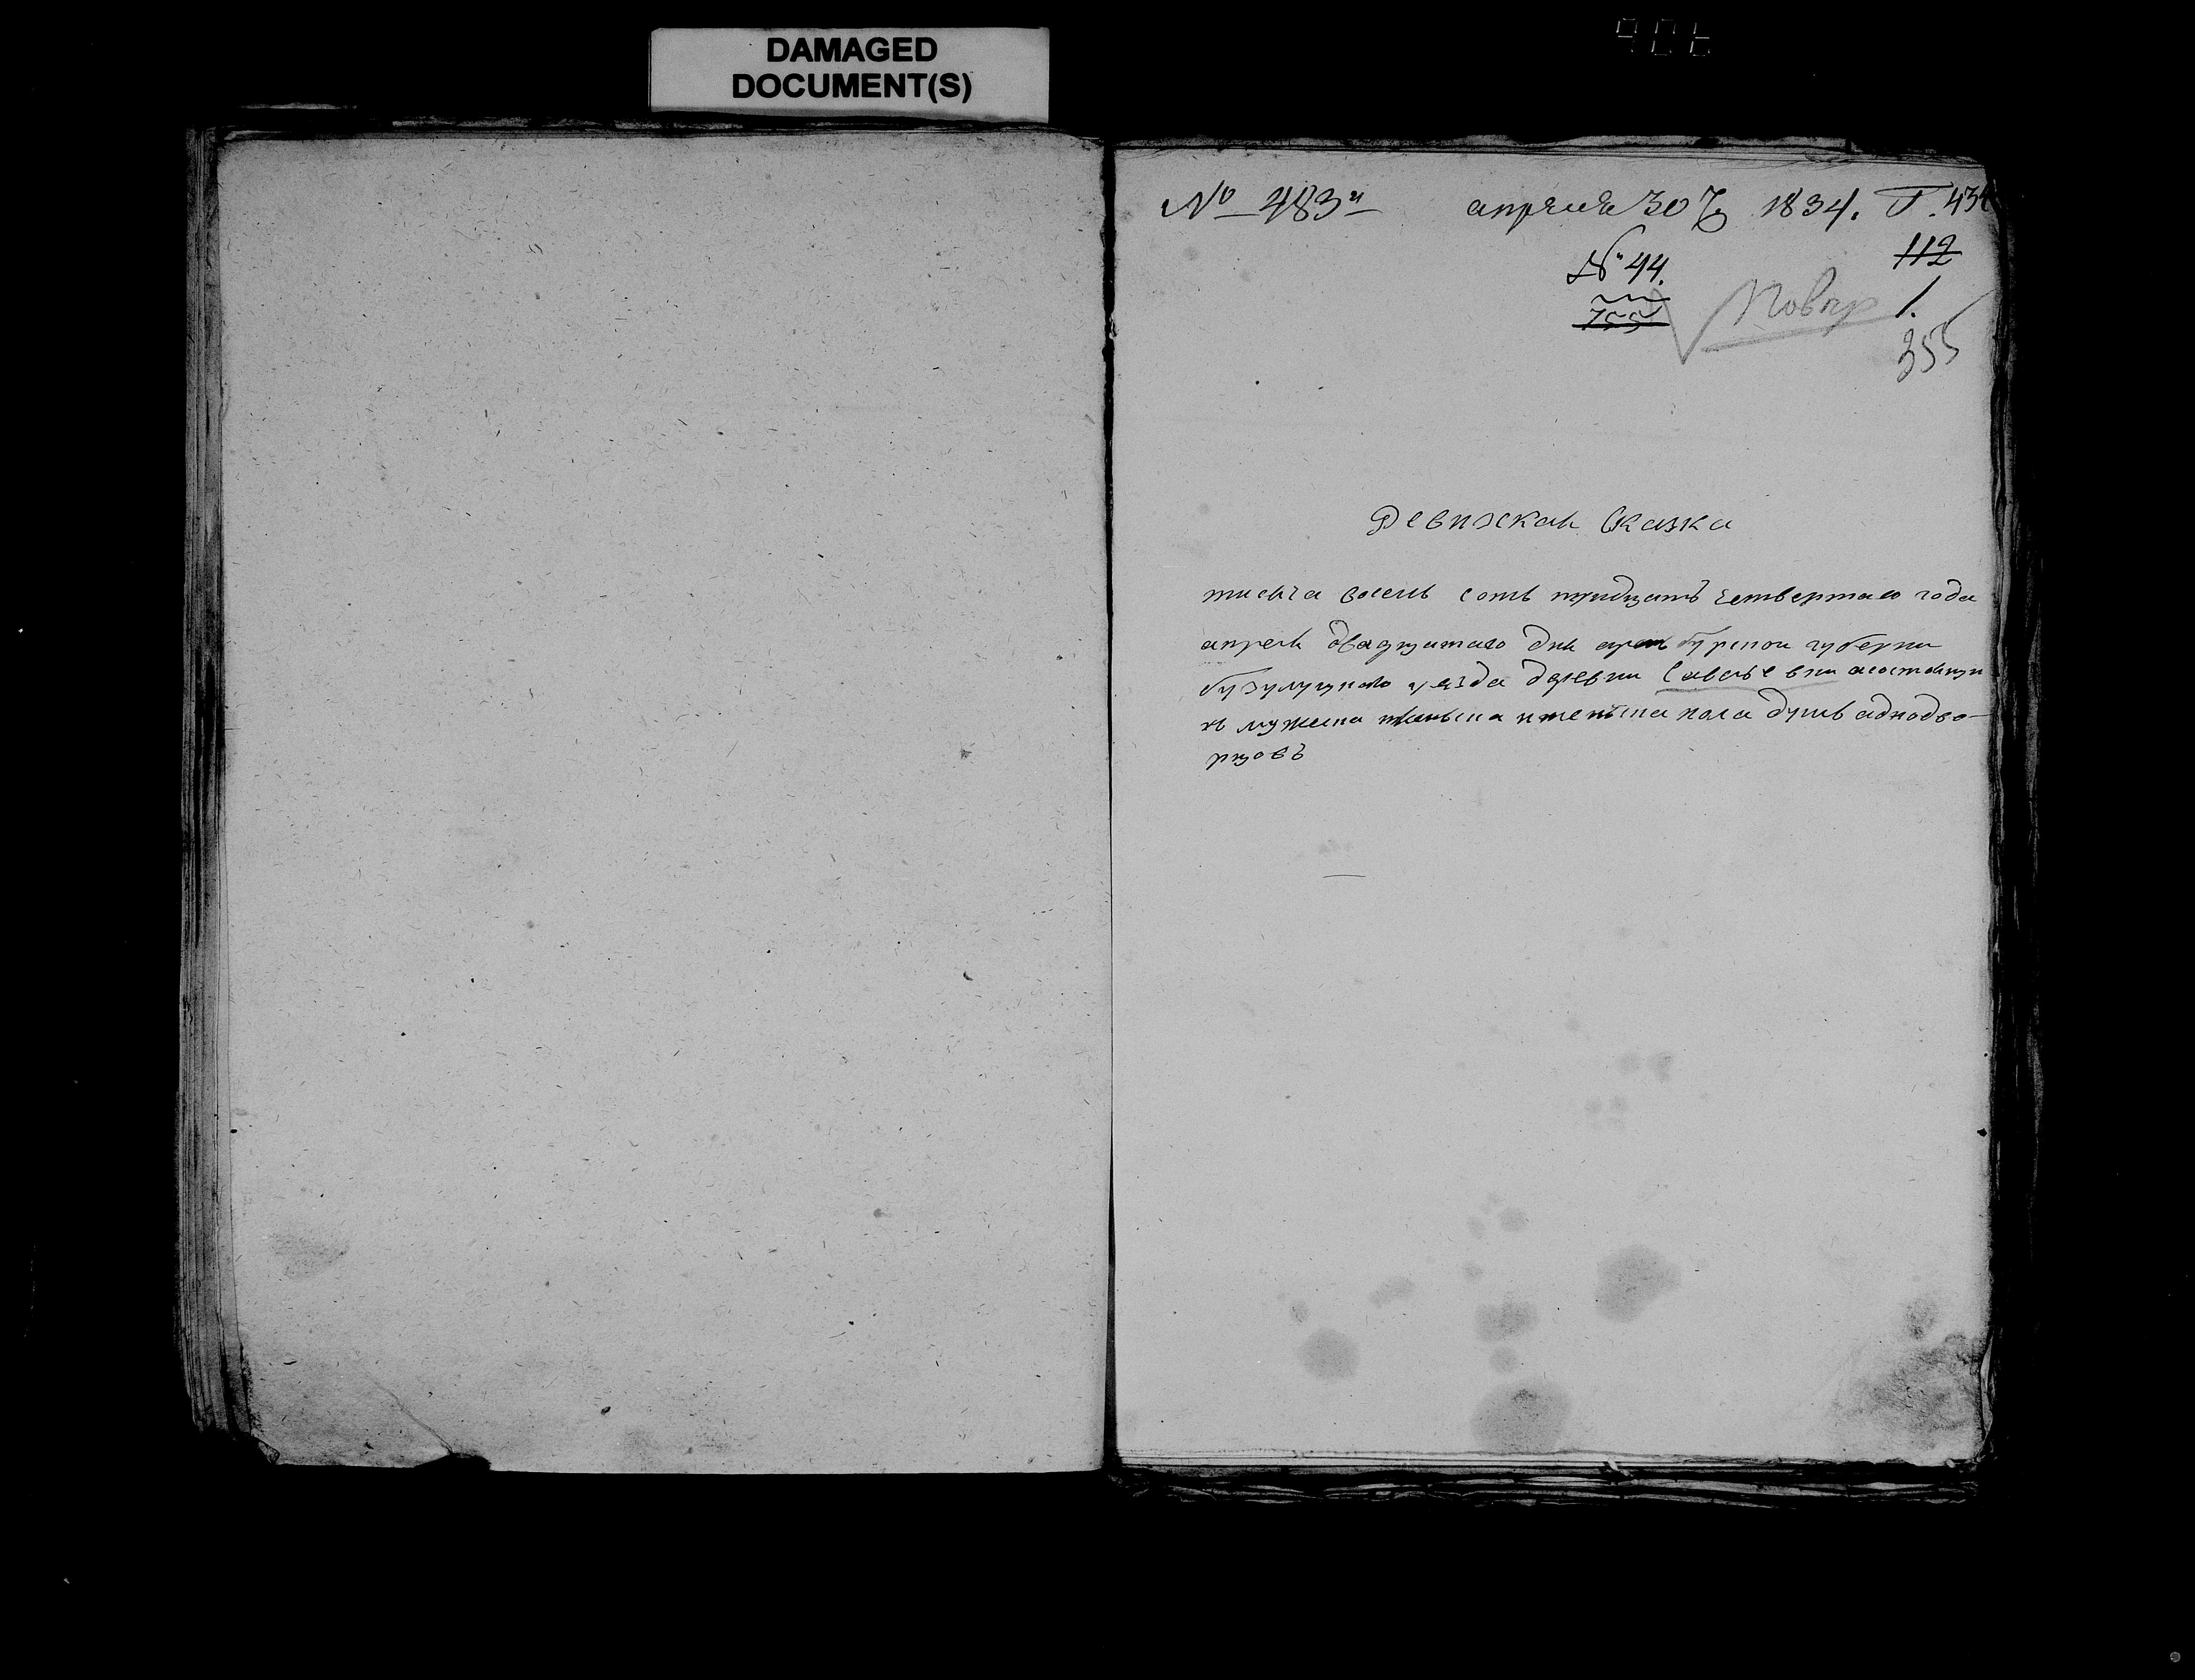 DAMAGED
DOCUMENT(S)
№ 483й апреля 30 1834. Г. 434
№ 44. 112
755 Повер 1.
355
Ревижская Сказка
тисяча восемь сотъ тридцатъ четвертаго года
апреля двадцатаго дня аренбурской губерни
бузулуцкаго уезда деревни Савельевки асостаящи
хъ мужеска и женьска пола душъ аднодво-
рцовъ